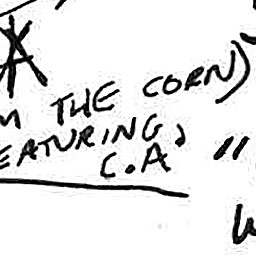 A
M THE CORN)
EATURING,
C.A. "
W